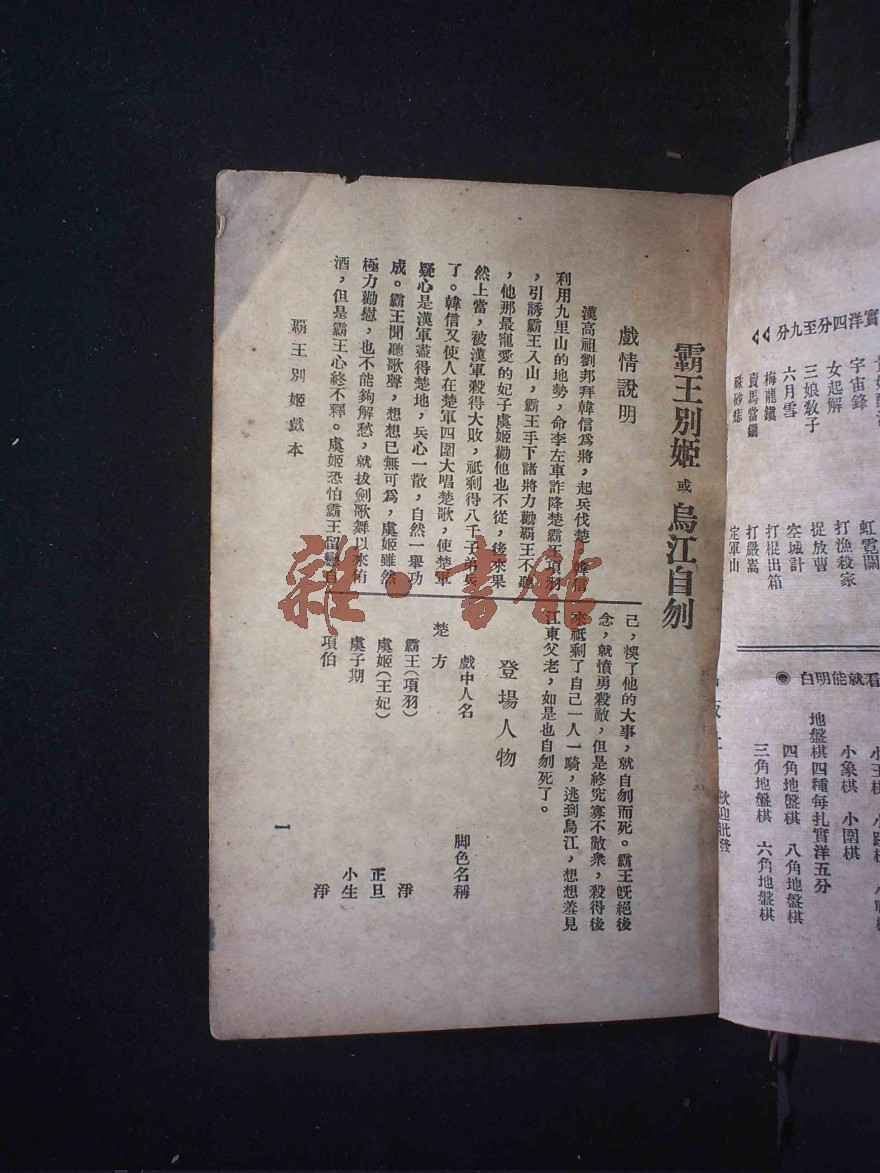 霸王別姬 或 烏江自刎
戲情說明
漢高祖劉邦拜韓信為將，起兵伐楚，韓信
利用九里山的地勢，命李左車詐降楚霸王項羽
，引誘霸王入山，霸王手下諸將力勸霸王不聽
，他那最寵愛的妃子虞姬勸他也不從，後來果
然上當，被漢軍殺得大敗，祗剩得八千子弟兵
了。韓信又使人在楚軍四圍大唱楚歌，使楚軍
疑心是漢軍盡得楚地，兵心一散，自然一舉功
成。霸王聞聽歌聲，想想已無可為，虞姬雖然
極力勸慰，也不能夠解愁，就拔劍歌舞以來侑
酒，但是霸王心終不釋。虞姬恐怕霸王留戀自
己，悞了他的大事，就自刎而死。霸王既絕後
念，就憤勇殺敵，但是終究寡不敵衆，殺得後
來祗剩了自己一人一騎，逃到烏江，想想羞見
江東父老，如是也自刎死了。
登場人物
戲中人名 脚色名稱
楚方
霸王(項羽) 淨
虞姬(王妃) 正旦
虞子期 小生
項伯 淨
霸王別姬戲本
一
實洋四分至九分
宇宙鋒 虹霓關
女起解 打漁殺家
三娘教子 捉放曹
六月雪 空城計
梅龍鎮 打棍出箱
賣馬當鐧 打嚴嵩
硃砂痣 定軍山
看就能明白 ◉
小象棋 小圍棋
地盤棋四種每扎實洋五分
四角地盤棋 八角地盤棋
三角地盤棋 六角地盤棋
歡迎批發
雜·書館